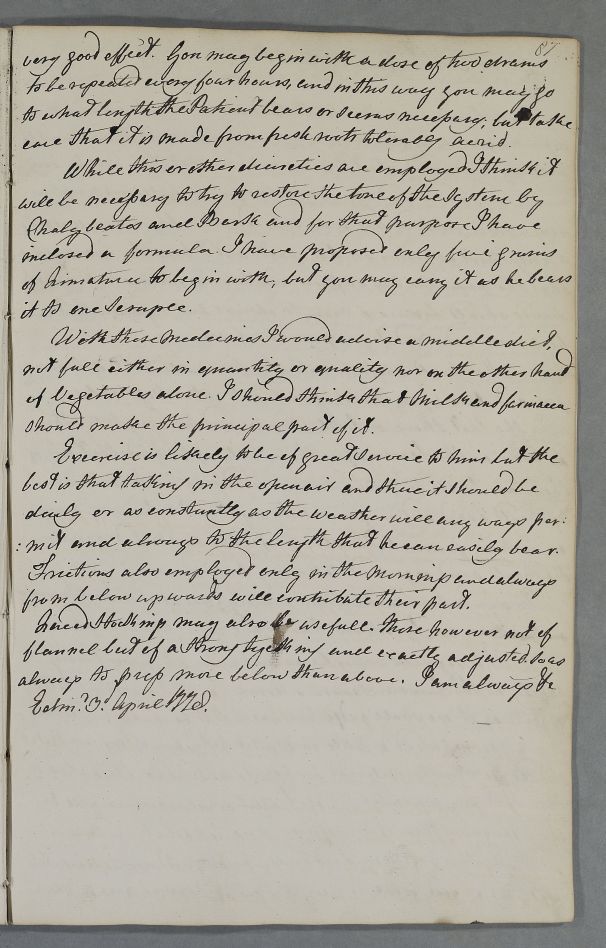 87
very good effect. You may begin with a dose of two drams
to be repeated every four hours, and in this way you may go
to what length the Patient bears or seems necessary, but take
care that it is made from fresh roots tolerably acrid.
While this or other diuretics are employed I think it
will be necessary to try to restore the tone of the System by
Chalybeates and Bark and for that purpose I have
inclosed a formula. I have proposed only five grains
of limatura to begin with, but you may carry it as he bears
it to one Scruple.
With these Medecines I would advise a middle diet,
not full either in quantity or quality nor on the other hand
of Vegetables alone. I should think that Milk and farinacea
should make the principal part of it.
Exercise is likely to be of great Service to him but the
best is that taking in the open air and there it should be
daily or as constantly as the weather will any ways per:
:mit and always to the length that he can easily bear.
Frictions also employed only in the Morning and always
from below upwards will contribute their part.
Laced Stockings may also be usefull. These however not of
flannel but of a strong and exactly adjusted so as
always to press more below than above. I am always &c
Edinr. 3d. April 1778.